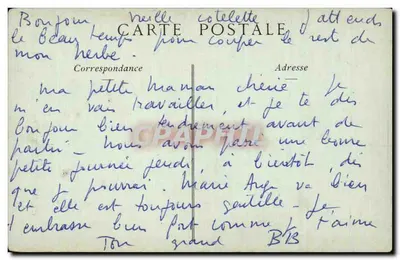 Bonjour, vieille cotelette j'attends
le beau temps pour couper le rest de
CARTE POSTALE
mon herbe.
Correspondance
Adresse
ma petite maman chérie je
m'en vais travailler, et je te dis
bonjour bien tendrement avant de
partir - nous avons passé une bonne
petite journée jeudi, à bientôt, dès
que je pourrai. Marie Ange va bien
et elle est toujours gentille - Je
t'embrasse bien fort comme je t'aime
Ton grand BB